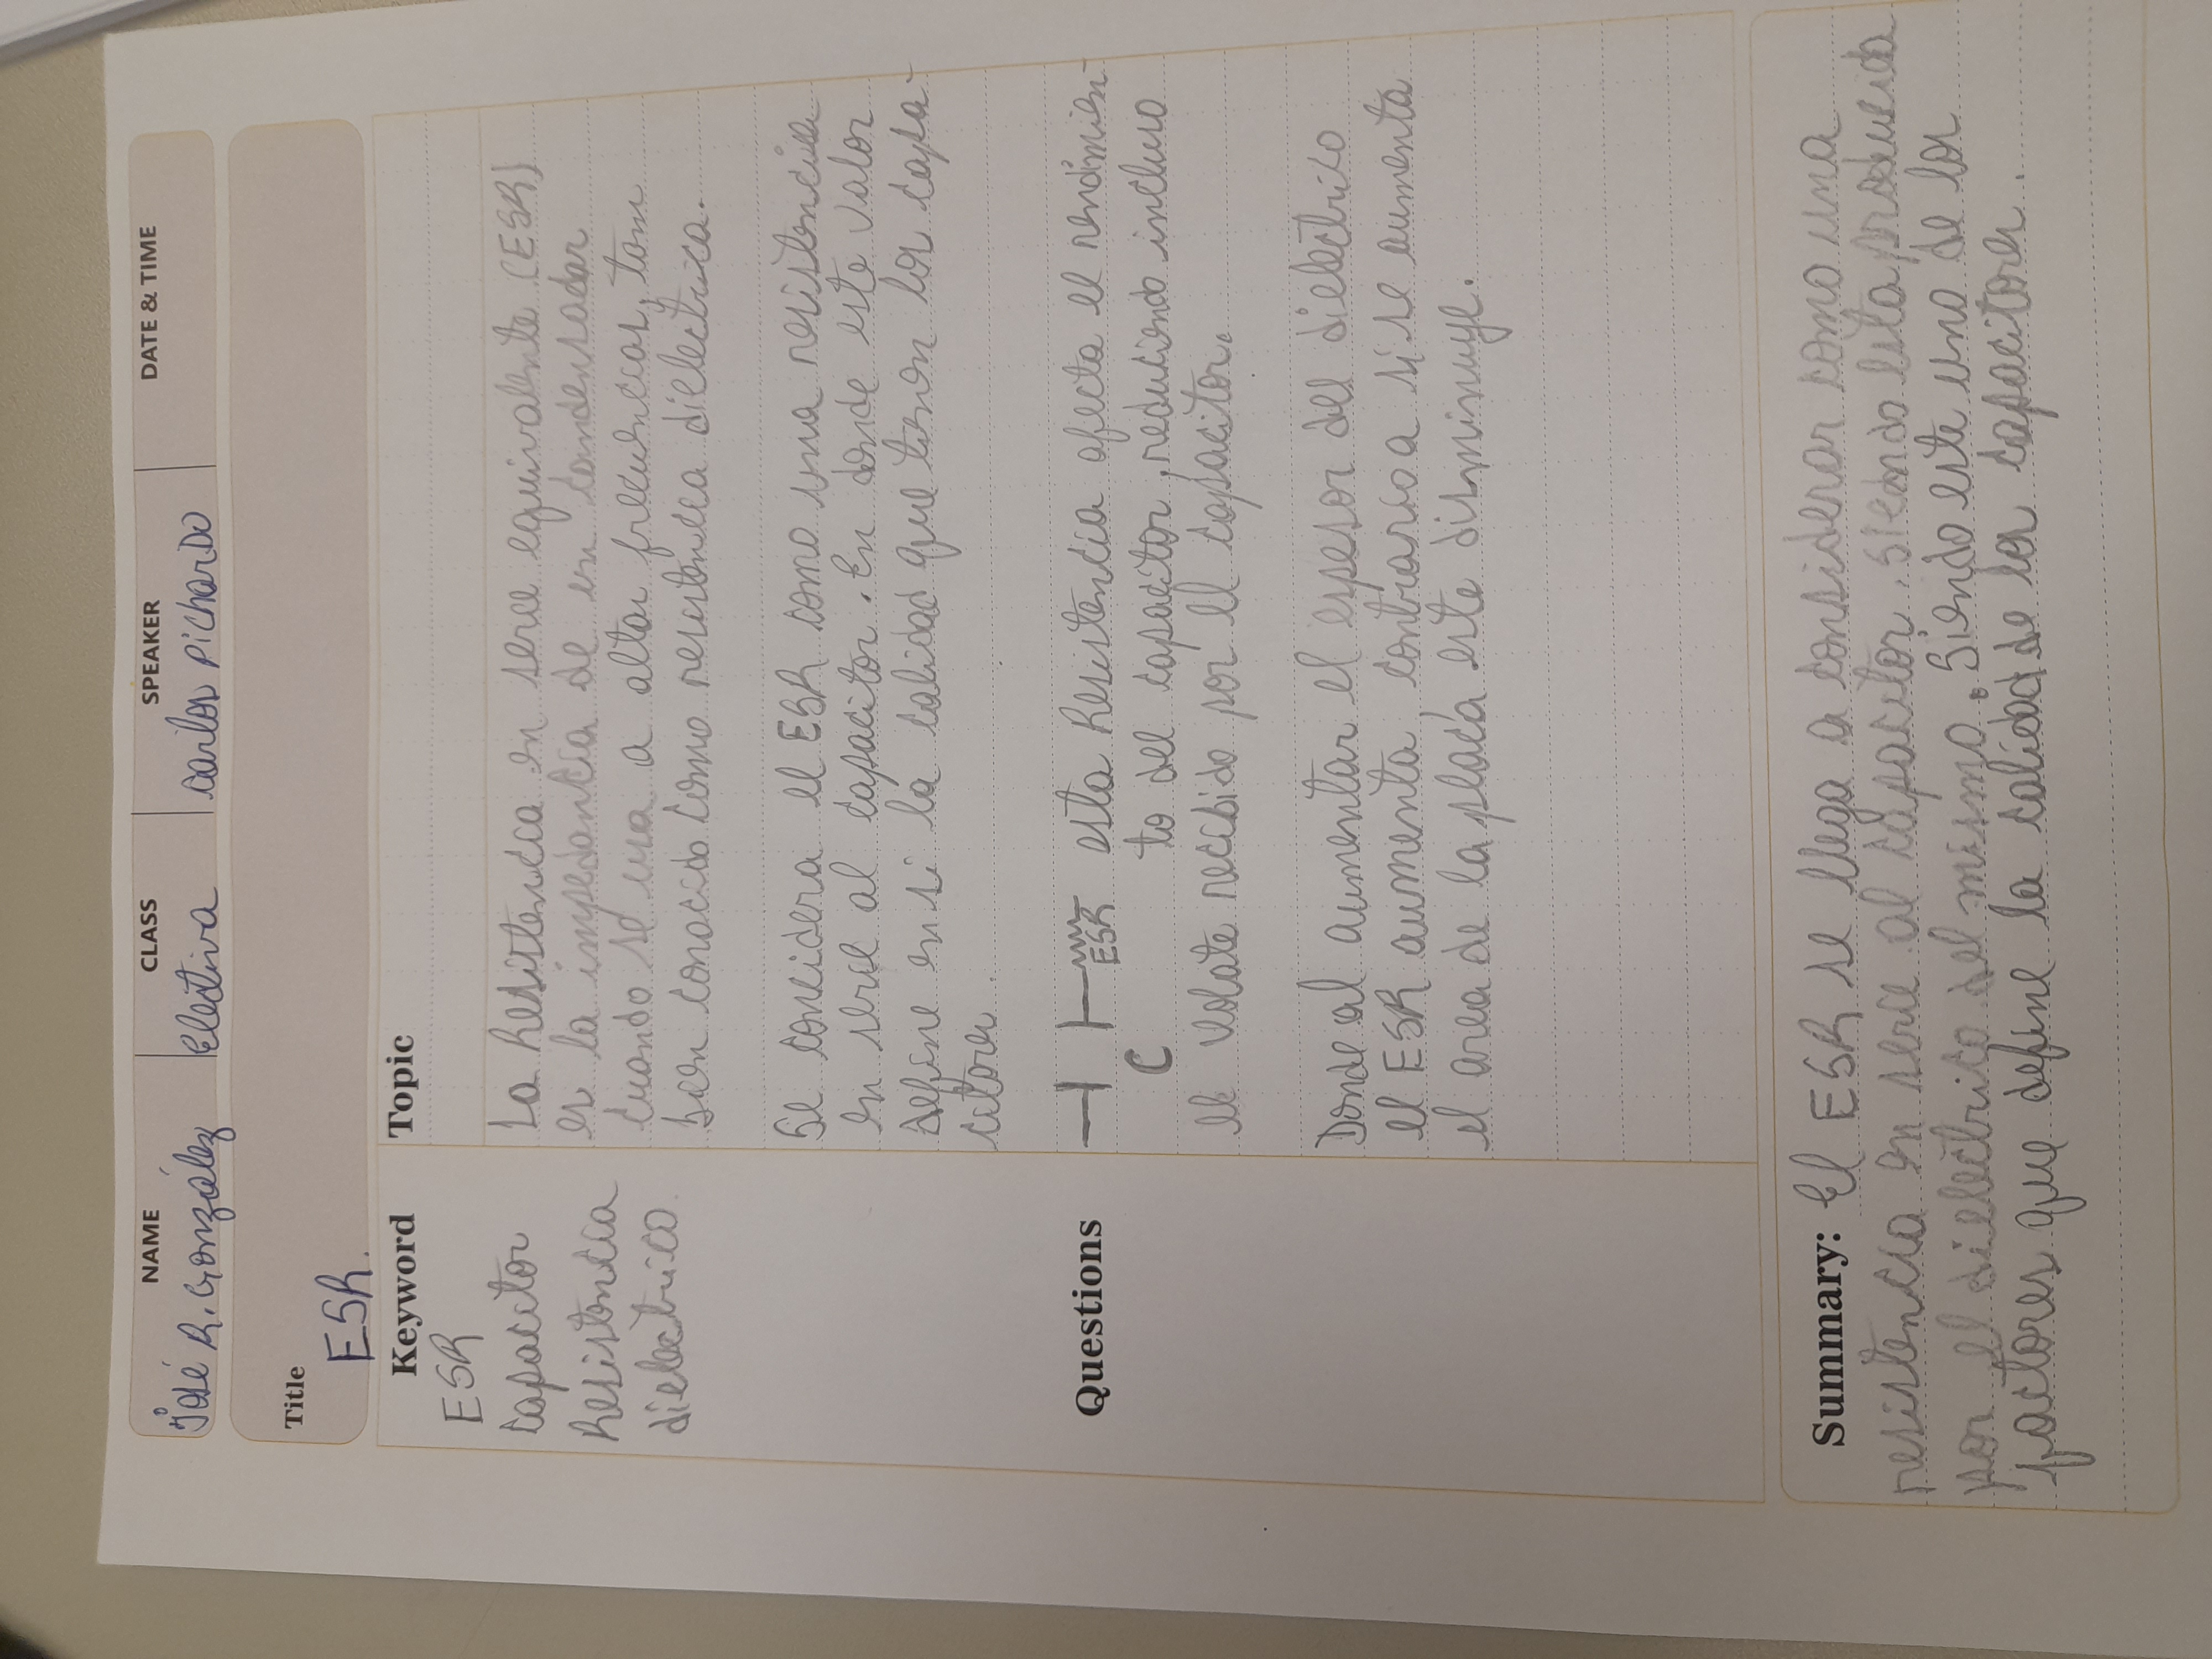 NAME CLASS SPEAKER DATE & TIME
José R. González Electiva Carlos Pichardo
Title
ESR.
Keyword
ESR
Capacitor
Resistencia
dielectrico.
Topic
La Resistencia en serie equivalente (ESR)
es la impedancia de un condensador
cuando se usa a altas frecuencias, tam
bien conocido como resistencia dielectrica.
Se considera el ESR como una resistencia
en serie al capacitor. En donde este valor
define en si la calidad que tienen los capa-
citores.
Questions
ESR esta Resistencia afecta el rendimien-
C to del capacitor, reduciendo incluso
el volate recibido por el capacitor.
Donde al aumentar el espesor del dielectrico
el ESR aumenta, contrario a si se aumenta
el area de la placa este disminuye.
Summary: El ESR se llega a considerar como una
resistencia en serie al capacitor. Siendo esta producida
por el dielectrico del mismo. Siendo este uno de los
factores que define la calidad de los capacitores.